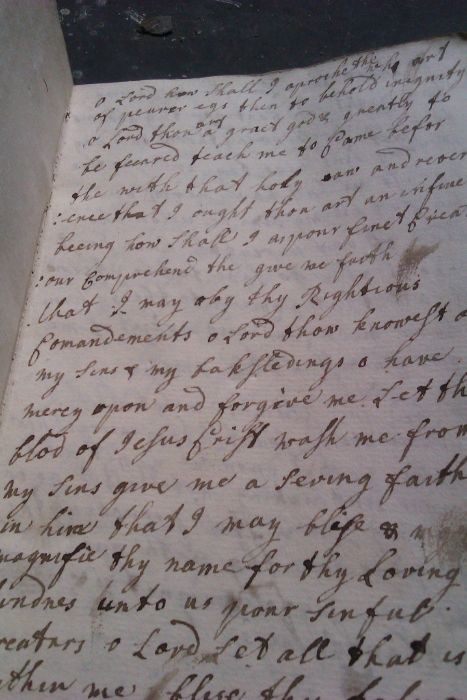 o Lord how Shall I aproche the who art
of peurer egs then to behold iniquity
o Lord thou art a great god & greatly to
be feared teach me to Came befor
the with that holy aw and rever
:ence that I ought thou art an infine
beeing how Shall I a pour finet Crea
:our Comprehend the give me faith
that I may oby thy Rightious
Comandements o Lord thou knowest a
my Sins & my baksledings o have
mercy upon and forgive me Let th
blod of Jesus Crist wash me from
my Sins give me a Seving faith
in him that I may blese & m
magnifie thy name for thy Loving
kindnes unto us pour Sinful
creaturs o Lord Let all that is
within me bless thy